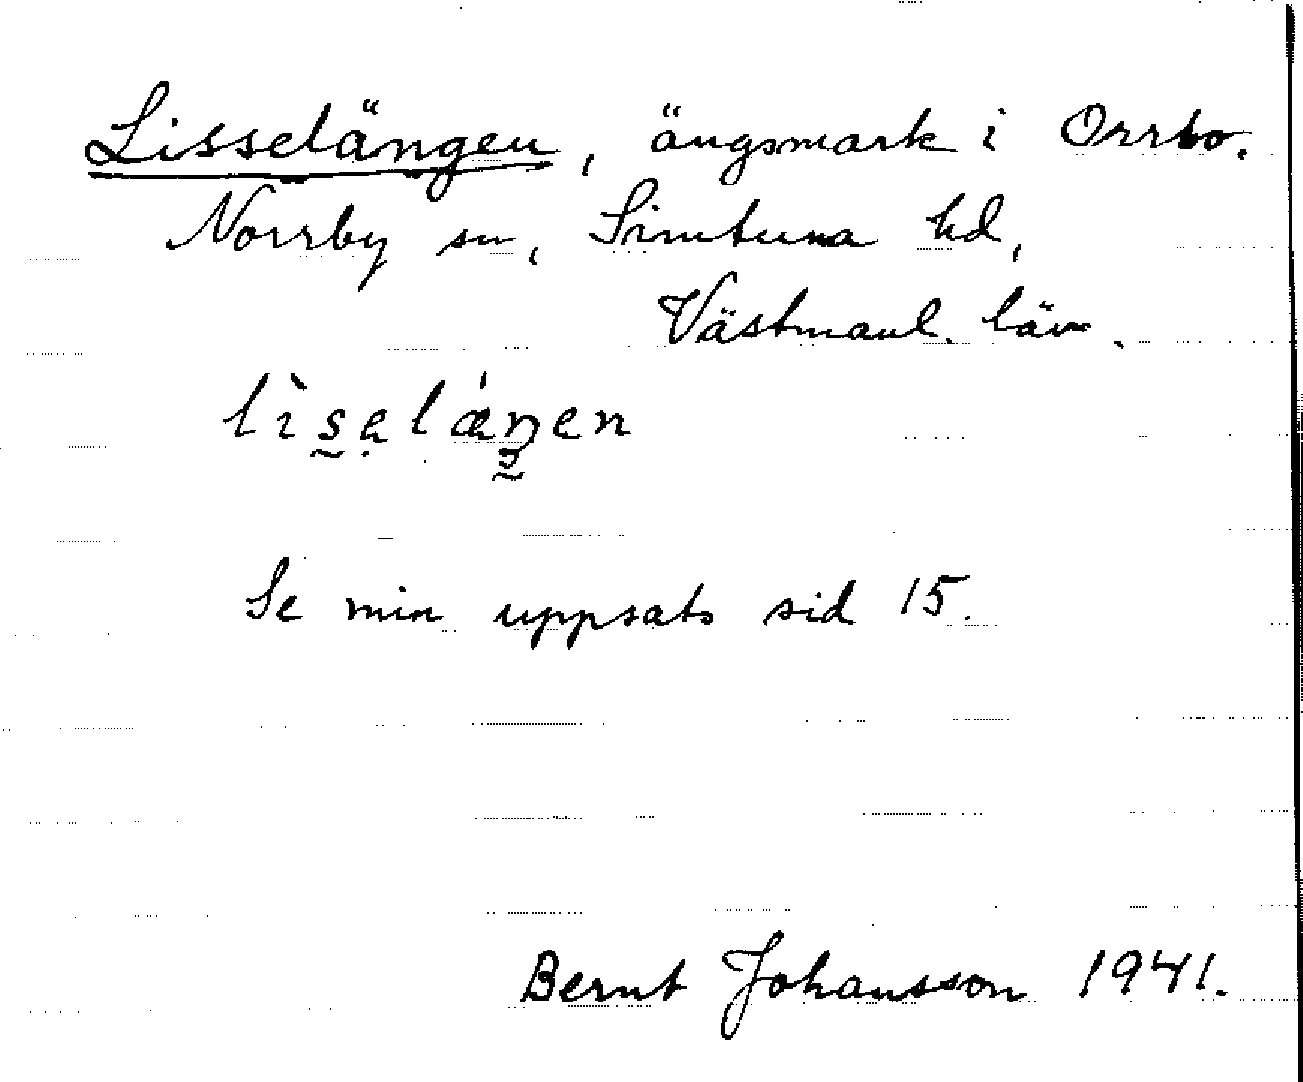 Lisselängen, ängsmark i Orrbo.
Norrby sn, Simtuna hd,
Västmanl. län.
lìsẹlǽŋen
Se min uppsats sid 15.
Bernt Johansson 1941.